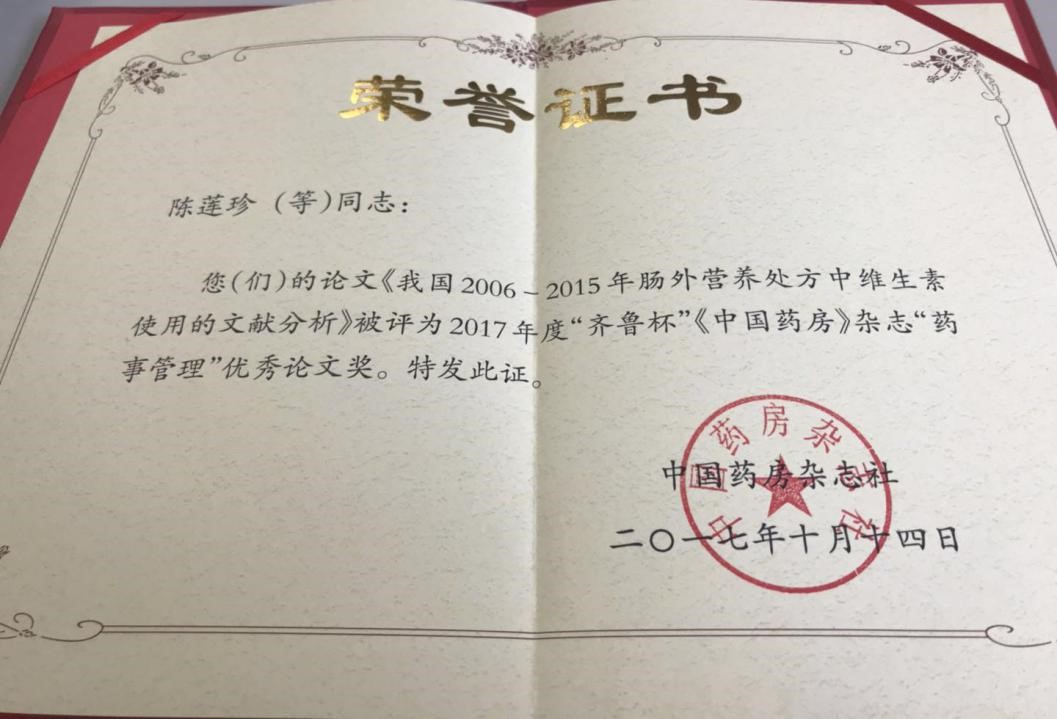 荣誉证书
陈莲珍（等）同志：
您(们)的论文《我国2006－2015年肠外营养处方中维生素
使用的文献分析》被评为2017年度“齐鲁杯”《中国药房》杂志“药
事管理”优秀论文奖。特发此证。
中国药房杂志社
中国药房杂志社
二〇一七年十月十四日